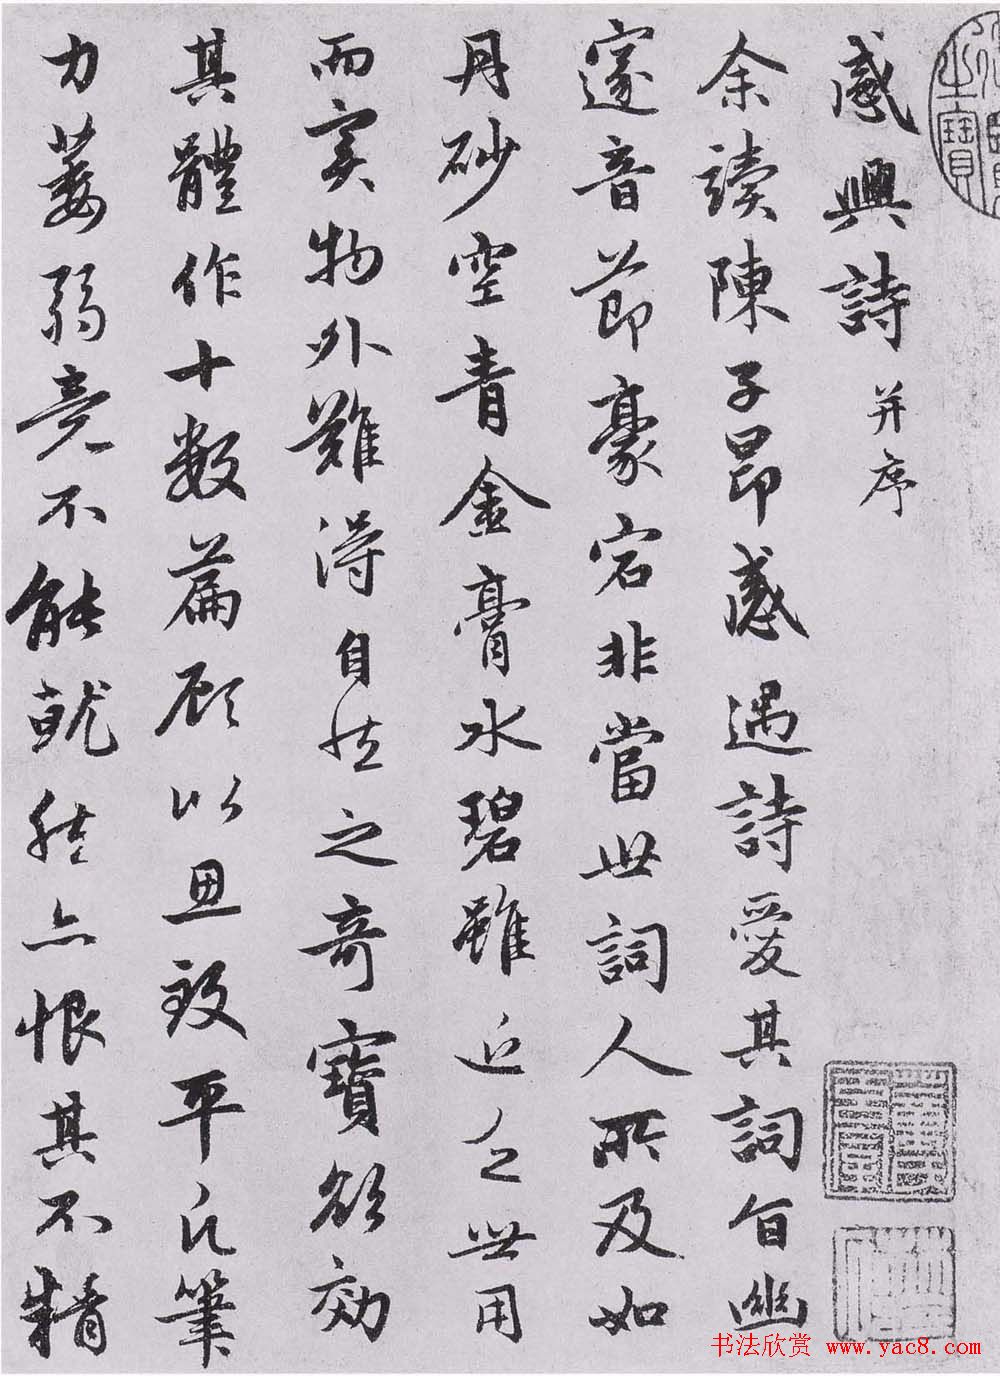 感興詩并序
余讀陳子昂感遇詩愛其詞旨幽
邃音節豪宕非當世詞人所及如
丹砂空青金膏水碧雖近乏世用
而實物外難得自然之奇寶欲効
其體作十數篇顧以思致平凡筆
力萎弱竟不能就然亦恨其不精
之寶
书法欣赏 www.yac8.com